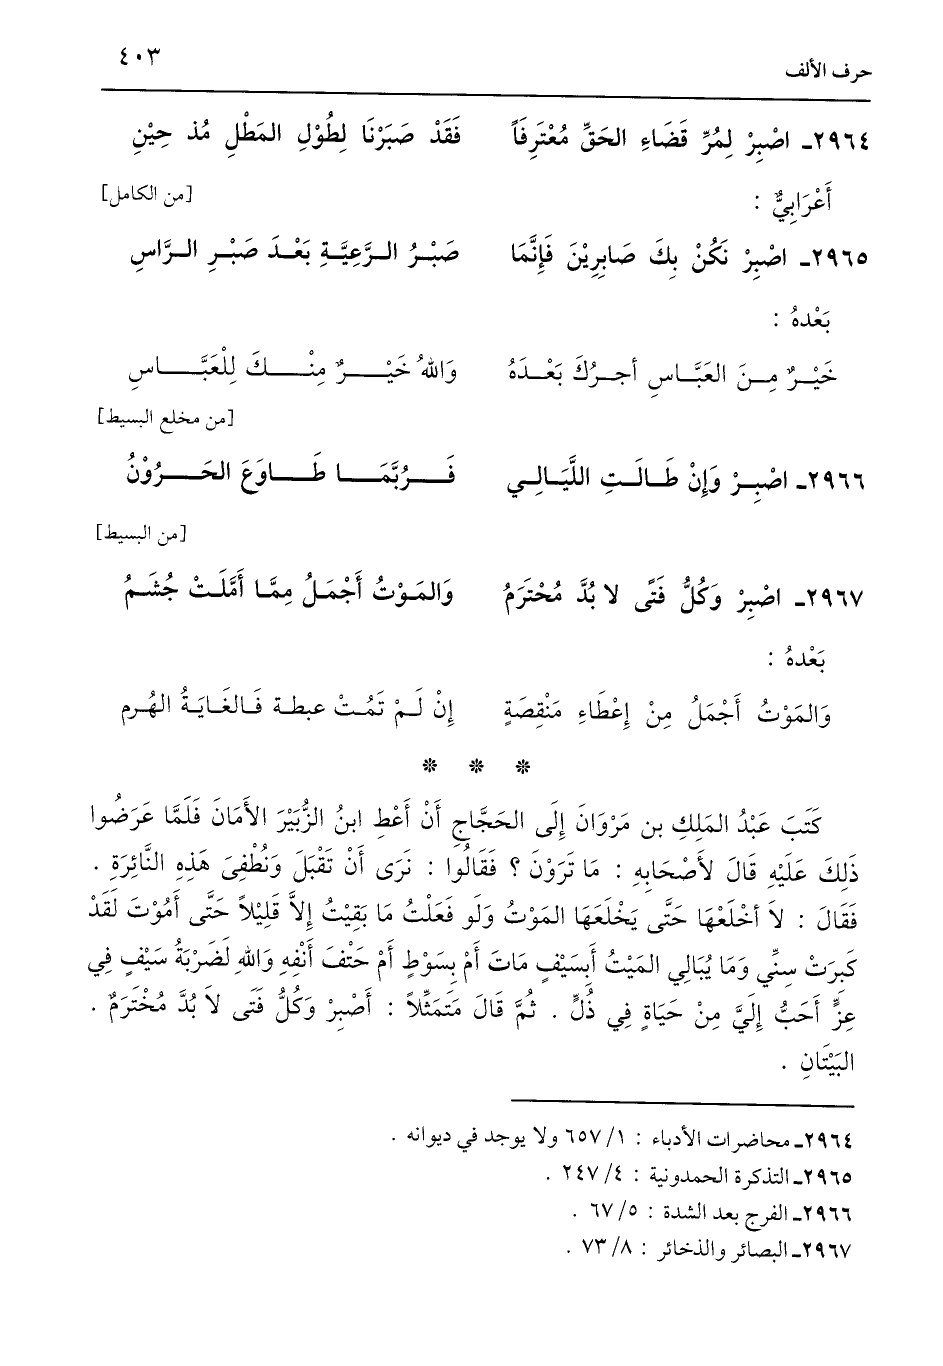 حرف الألف ٤٠٣
٢٩٦٤ـ اصْبِرْ لِمُرِّ قَضَاءِ الحَقِّ مُعْتَرِفَاً فَقَدْ صَبَرْنَا لِطُوْلِ المَطْلِ مُذ حِيْنِ
أَعْرَابِيٌّ : [من الكامل]
٢٩٦٥ـ اصْبِرْ نَكُنْ بِكَ صَابِرِيْنَ فَإِنَّمَا صَبْرُ الرَّعِيَّةِ بَعْدَ صَبْرِ الرَّاسِ
بَعْدهُ :
خَيْرٌ مِنَ العَبَّاسِ أجرُكَ بَعْدَهُ وَاللهُ خَيْرٌ مِنْكَ لِلْعَبَّاسِ
[من مخلع البسيط]
٢٩٦٦ـ اصْبِرْ وَإِنْ طَالَتِ اللَّيَالِي فَرُبَّمَا طَاوَعَ الحَرُوْنُ
[من البسيط]
٢٩٦٧ـ اصْبِرْ وَكُلُّ فَتًى لا بُدَّ مُخْتَرَمُ وَالمَوْتُ أَجْمَلُ مِمَّا أَمَّلَتْ جُشَمُ
بَعْدهُ :
وَالمَوْتُ أَجْمَلُ مِنْ إِعْطَاءِ مَنْقِصَةٍ إِنْ لَمْ تَمُتْ عبطة فَالغَايَةُ الهُرم
* * *
كَتَبَ عَبْدُ المَلِكِ بن مَرْوَانَ إِلَى الحَجَّاجِ أَنْ أَعْطِ ابنُ الزُّبَيْرَ الأَمَانَ فَلَمَّا عَرَضُوا
ذَلِكَ عَلَيْهِ قَالَ لأَصْحَابِهِ : مَا تَرَوْنَ ؟ فَقَالُوا : نَرَى أَنْ تَقْبَلَ وَنُطْفِىَ هَذِهِ النَّائِرَةِ .
فَقَالَ : لاَ أخْلَعْهَا حَتَّى يَخْلَعَهَا المَوْتُ وَلَو فَعَلْتُ مَا بَقِيْتُ إِلاَّ قَلِيْلاً حَتَّى أَمُوْتَ لَقَدْ
كَبِرَتْ سِنِّي وَمَا يُبَالِي المَيْتُ أَبِسَيْفٍ مَاتَ أَمْ بِسَوْطٍ أَمْ حَتْفَ أَنْفِهِ وَاللهِ لَضَرْبَةُ سَيْفٍ فِي
عِزٍّ أَحَبُّ إِلَيَّ مِنْ حَيَاةٍ فِي ذُلٍّ . ثُمَّ قَالَ مَتَمَثِّلاً : أَصْبِرْ وَكُلُّ فَتَى لاَ بُدَّ مُخْتَرَمٌ .
البَيْتَانِ .
٢٩٦٤ـ محاضرات الأدباء : ١/ ٦٥٧ ولا يوجد في ديوانه .
٢٩٦٥ـ التذكرة الحمدونية : ٤/ ٢٤٧ .
٢٩٦٦ـ الفرج بعد الشدة : ٥/ ٦٧ .
٢٩٦٧ـ البصائر والذخائر : ٨/ ٧٣ .